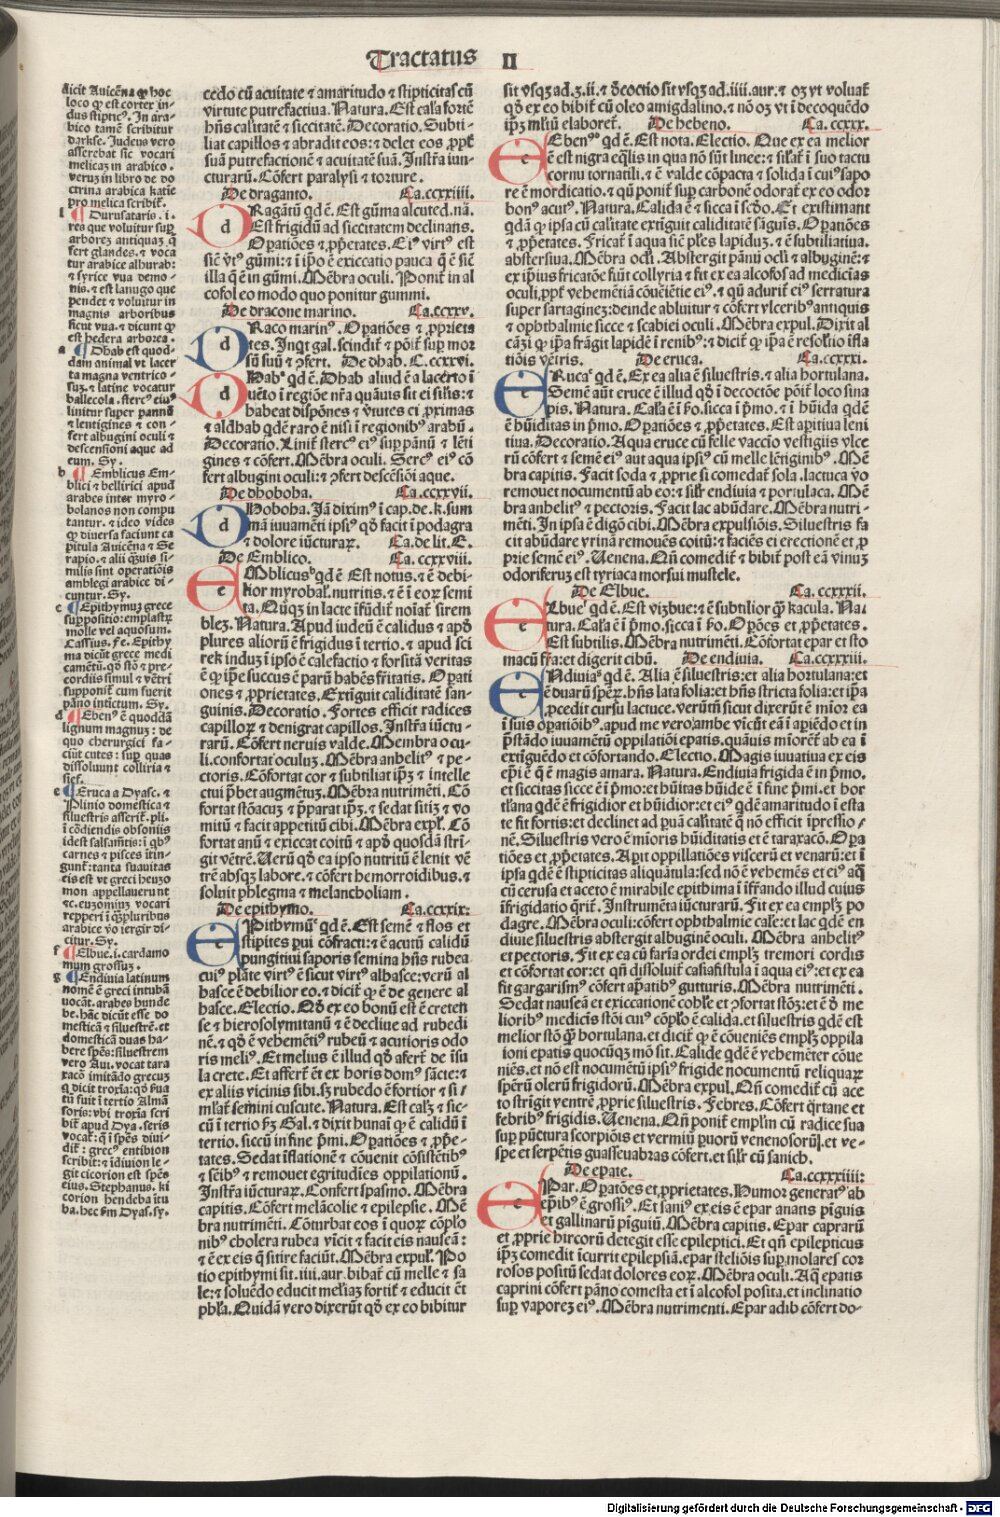 Tractatus II
dicit Auicēna ꝙ hoc
loco ꝙ est cortex in-
dus stipticꝰ. In ara-
bico tamē scribitur
darkse. Judeus vero
asserebat sic vocari
melicaȝ in arabico.
veruȝ in libro de do
ctrina arabica katie
pro melica scribit̄.
l ¶ Durusatario. i.
res que voluitur suꝑ
arboreȝ antiquaȝ ꝙ
fert glandes. ⁊ voca
tur arabice alhurab:
⁊ syrice vua demo-
nis. ⁊ est lanugo que
pendet ⁊ voluitur in
magnis arboribus
sicut vua. ⁊ dicunt ꝙ
est hedera arborea.
a ¶ Dhab est quod-
dam animal vt lacer
ta magna ventrico-
suȝ. ⁊ latine vocatur
ballecola. stercꝰ eiuꝰ
linitur super pannū
⁊ lentigines ⁊ con-
fert albugini oculi ⁊
descensioni aque ad
eum. Sy.
b ¶ Emblicus Em-
blici ⁊ bellirici apud
arabes inter myro-
bolanos non compu
tantur. ⁊ ideo vides
ꝙ diuersa faciunt ca
pitula Auicēna ⁊ Se
rapio. ⁊ alij q̄uis si-
milis sint operatiōis
amblegi arabice di-
cuntur. Sy.
c ¶ Epithymuȝ grece
suppositio: emplastꝝ
molle vel aquosum.
Cassius. f̄e. Epithy
ma dicūt grece medi
camētū. qd̄ stō ⁊ pre-
cordiis simul ⁊ vētri
supponit̄ cum fuerit
pāno intictum. Sy.
d ¶ Ebenꝰ ē quoddā
lignum magnuȝ: de
quo cherurgici fa-
ciūt cutes: suꝑ quas
dissoluunt colliria ⁊
sief.
e ¶ Eruca a Dyasc. ⁊
Plinio domestica ⁊
siluestris asserit̄. pli.
i cōdiendis obsoniis
idest salsamētis: i qbꝰ
carnes ⁊ pisces itin-
gunt̄: tanta suauitas
eis est vt greci heuzo
mon appellauerunt
⁊c. euzominȝ vocari
repperi i q̄ȝpluribus
arabice vo iergir di-
citur. Sy.
f ¶ Elbue. i. cardamo
mum grossuȝ.
g ¶ Endiuia latinum
nomē ē greci intubā
vocāt. arabes hunde
be. hāc dicūt esse do
mesticā ⁊ siluestrē. et
domesticā duas ha-
bere sp̄es: siluestrem
vero Aui. vocat tara
xacō imitādo grecuȝ
q̄ dicit troxia: qd̄ ƥua
tū fuit i tertio Almā
soris: vbi troxia scri
bit̄ apud Dya. seris
vocat̄: q̄ i sp̄es diui-
dit̄: grecꝰ entibion
scribit̄: ⁊ idiuion le-
git cicorion est sp̄es
eius. Stephanus. ki
corion hendeba itu
ba. hec ẜm Dyas. sy.
cedo cū acuitate ⁊ amaritudo ⁊ stipticitas cū
virtute putrefactiua. Natura. Est cal̄a fortē
hn̄s caliitatē ⁊ siccitatē. Decoratio. Subti-
liat capillos ⁊ abradit eos: ⁊ delet eos ꝓpt̄
suā putrefactionē ⁊ acuitatē suā. Instr̄a iun-
cturarū. Cōfert paralysi ⁊ torture.
De draganto. Ca. ccxxiiii.
d RAgātū qd ē. Est gūma alcuted. nā.
Est frigidū ad siccitatem declinans.
Oꝑatiōes ⁊ ꝓp̄etates. Eiꝰ virtꝰ est
sic̄ v̄tꝰ gūmi: ⁊ ī ip̄o ē exiccatio pauca q̄ ē sic̄
illa q̄ ē in gūmi. Mēbra oculi. Ponit̄ in al
cofol eo modo quo ponitur gummi.
De dracone marino. Ca. ccxxv.
d RAco marinꝰ. Oꝑatiōes ⁊ ꝓprieta
tes. Inq̄t gal. scindit̄ ⁊ pōit̄ suꝑ mor
sū suū ⁊ ꝯfert. De dhab. C. ccxxvi.
d HAbꝰ qd ē. Dhab aliud ē a lacerto ī
uēto i regiōe nr̄a quāuis sit ei sil̄is: ⁊
habeat dispōnes ⁊ v̄tutes ei ꝓximas
⁊ aldhab qd ē raro ē nisi i regionibꝰ arabū.
Decoratio. Linit̄ stercꝰ eiꝰ suꝑ pānū ⁊ lēti
gines ⁊ cōfert. Mēbra oculi. Sercꝰ eiꝰ cō
fert albugini oculi: ⁊ ꝯfert descēsiōi aque.
De dhoboha. Ca. ccxxvii.
d HOboha. Jā diximꝰ ī cap. de. k. sum
mā iuuamēti ipsiꝰ qd̄ facit i podagra
⁊ dolore iūcturaꝝ. Ca. de lit. E.
De Emblico. Ca. ccxxviii.
e MBlicusꝰ qd ē Est notus. ⁊ ē debi-
lior myrobal̄. nutritis. ⁊ ē i eoꝝ semi
ta. Qn̄qȝ in lacte īfūdit̄ noīat̄ sirem
bleȝ. Natura. Apud iudeū ē calidus ⁊ apd̄
plures aliorū ē frigidus i tertio. ⁊ apud sci
rek induȝ i ipso ē calefactio ⁊ forsitā veritas
ē ꝙ ip̄e succus ē parū habēs fritatis. Oꝑati
ones ⁊ ꝓprietates. Extiguit caliditatē san-
guinis. Decoratio. Fortes efficit radices
capilloꝝ ⁊ denigrat capillos. Instr̄a iūctu-
rarū. Cōfert neruis valde. Membra ocu-
li. confortat oculuȝ. Mēbra anhelitꝰ ⁊ pe-
ctoris. Cōfortat cor ⁊ subtiliat ip̄ȝ ⁊ intelle
ctui p̄bet augmētuȝ. Mēbra nutrimēti. Cō
fortat stōacuȝ ⁊ p̄parat ip̄ȝ. ⁊ sedat sitiȝ ⁊ vo
mitū ⁊ facit appetitū cibi. Mēbra expl̄. Cō
fortat anū ⁊ exiccat coitū ⁊ apd̄ quosdā strī-
git vētrē. Uerū qd̄ ea ipso nutritū ē lenit vē
trē absqȝ labore. ⁊ cōfert hemorroidibus. ⁊
soluit phlegma ⁊ melancholiam.
De epithymo. Ca. ccxxix:
e PIthymūꝰ qd ē. Est semē ⁊ flos et
stipites pui cōfractu: ⁊ ē acutū calidū
pungitiui saporis semina hn̄s rubea
cuiꝰ plāte virtꝰ ē sicut virtꝰ albasce: verū al
basce ē debilior eo. ⁊ dicit̄ ꝙ ē de genere al
basce. Electio. Qd̄ ex eo bonū est ē creten
se ⁊ hierosolymitanū ⁊ ē decliue ad rubedi
nē. ⁊ qd̄ ē vehemētiꝰ rubeū ⁊ acutioris odo
ris meliꝰ. Et melius ē illud qd̄ afert̄ de isu
la crete. Et affert̄ ēt ex horis domꝰ sācte: ⁊
ex aliis vicinis sibi. sȝ rubedo ē fortior ⁊ si/
mlat̄ semini cuscute. Natura. Est calȝ ⁊ sic-
cū i tertio ẜȝ Gal. ⁊ dixit hunai ꝙ ē calidū i
tertio. siccū in fine p̄mi. Oꝑatiōes ⁊ ꝓp̄e-
tates. Sedat iflationē ⁊ cōuenit cōsistētibꝰ
⁊ sēibꝰ ⁊ remouet egritudies oppilationū.
Instr̄a iūcturaꝝ. Confert spasmo. Mēbra
capitis. Cōfert melācolie ⁊ epilepsie. Mē
bra nutrimēti. Cōturbat eos i quoꝝ cōplō
nibꝰ cholera rubea vicit ⁊ facit eis nauseā:
⁊ ē ex eis q̄ sitire faciūt. Mēbra expul̄. Po
tio epithymi sit. iiii. aur. bibat̄ cū melle ⁊ sa
le: ⁊ soluēdo educit mel̄iaȝ fortit̄ ⁊ educit ēt
phl̄a. Quidā vero dixerūt qd̄ ex eo bibitur
sit vsqȝ ad. ȝ. ii. ⁊ d̄coctio sit vsqȝ ad. iiii. aur. ⁊ oȝ vt voluat̄
qd̄ ex eo bibit̄ cū oleo amigdalino. ⁊ nō oȝ vt i decoquēdo
ip̄ȝ ml̄tiū elaboret̄. De hebeno. Ca. ccxxx.
e EBenꝰꝰ qd ē. Est nota. Electio. Que ex ea melior
ē est nigra eq̄lis in qua nō sūt linee: ⁊ sil̄at̄ i suo tactu
cornu tornatili. ⁊ ē valde cōpacta ⁊ solida i cuiꝰ sapo
re ē mordicatio. ⁊ qū ponit̄ suꝑ carbonē odorat̄ ex eo odor
bonꝰ acutꝰ. Natura. Calida ē ⁊ sicca i sc̄do. Et existimant
qdā ꝙ ipsa cū cal̄itate extiguit caliditatē sāguīs. Oꝑatiōes
⁊ ꝓp̄etates. Fricat̄ i aqua sic̄ pl̄es lapiduȝ. ⁊ ē subtiliatiua.
abstersiua. Mēbra oc̄li. Abstergit pānū oc̄li ⁊ albuginē: ⁊
ex ip̄ius fricatōe fiūt collyria ⁊ fit ex ea alcofol ad medicias
oculi. ꝓpt̄ vehemētiā cōueiētie eiꝰ. ⁊ qū adurit̄ eiꝰ serratura
super sartagineȝ: deinde abluitur ⁊ cōfert vlceribꝰ antiquis
⁊ ophthalmie sicce ⁊ scabiei oculi. Mēbra expul. Dixit al
caȝi ꝙ ip̄a frāgit lapidē i renibꝰ: ⁊ dicit̄ ꝙ ip̄a ē resolꝰio ifla
tiōis vētris. De eruca. Ca. ccxxxi.
e RUcaꝰ qd ē. Ex ea alia ē siluestris. ⁊ alia hortulana.
Semē aūt eruce ē illud qd̄ i decoctōe pōit̄ loco sina
pis. Natura. Cal̄a ē i ẜo. sicca i p̄mo. ⁊ i hūida qd ē
ē hūiditas in p̄mo. Oꝑatiōes ⁊ ꝓp̄etates. Est aꝑitiua leni
tiua. Decoratio. Aqua eruce cū felle vaccio vestigiis vlce
rū cōfert ⁊ semē eiꝰ aut aqua ipsiꝰ cū melle lētiginibꝰ. Mē
bra capitis. Facit soda ⁊ ꝓprie si comedat̄ sola. lactuca vo
remouet nocumentū ab eo: ⁊ sil̄r endiuia ⁊ portulaca. Mē
bra anhelitꝰ ⁊ pectoris. Facit lac abūdare. Mēbra nutri-
mēti. In ipsa ē digō cibi. Mēbra expulsiōis. Siluestris fa
cit abūdare vrinā remouēs coitū: ⁊ faciēs ei erectionē et ꝓ
prie semē eiꝰ. Uenena. Qn̄ comedit̄ ⁊ bibit̄ post eā vinuȝ
odoriferuȝ est tyriaca morsui mustele.
De Elbue. Ca. ccxxxii.
e LBueꝰ qd ē. Est vizbue: ⁊ ē subtilior q̄ȝ kacula. Na
tura. Cal̄a ē i p̄mo. sicca i ẜo. Oꝑōes et ꝓp̄etates.
Est subtilis. Mēbra nutrimēti. Cōfortat epar et sto
macū fr̄a: et digerit cibū. De endiuia. Ca. ccxxxiii.
e NDiuiaꝰ qd ē. Alia ē siluestris: et alia hortulana: et
ē duarū sp̄erꝝ. hn̄s lata folia: et hn̄s stricta folia: et ip̄a
ꝓcedit cursu lactuce. verūtn̄ sicut dixerūt ē mīor ea
i suis oꝑatiōibꝰ. apud me vero ambe vicūt eā i aꝑiēdo et in
p̄stādo iuuamētū oppilatiōi epatis. quāuis mīoret̄ ab ea i
extiguēdo et cōfortando. Electio. Magis iuuatiua ex eis
epi ē q̄ ē magis amara. Natura. Endiuia frigida ē in p̄mo.
et siccitas sicce ē i p̄mo: et hūitas hūide ē i fine p̄mi. et hor
tl̄ana qd ē ē frigidior et hūidior: et eiꝰ qd ē amaritudo i esta
te fit fortis: et declinet ad ꝑuā cal̄itatē q̄ nō efficit īpressio/
nē. Siluestris vero ē mīoris hūiditatis et ē taraxacō. Oꝑa
tiōes et ꝓp̄etates. Aꝑit oppillatiōes viscerū et venarū: et i
ipsa qd ē ē stipticitas aliquātula: sed nō ē vehemēs et eiꝰ aq̄
cū cerusa et aceto ē mirabile epithima i īfrādo illud cuius
īfrigidatio q̄rit̄. Instrumēta iūcturarū. Fit ex ea emplȝ po
dagre. Mēbra oculi: cōfert ophthalmie cal̄e: et lac qd ē en
diuie siluestris abstergit albuginē oculi. Mēbra anhelitꝰ
et pectoris. Fit ex ea cū farīa ordei emplȝ tremori cordis
et cōfortat cor: et qn̄ dissoluit̄ casiafistula i aqua eiꝰ: et ex ea
fit gargarismꝰ cōfert ap̄atibꝰ gutturis. Mēbra nutrimēti.
Sedat nauseā et exiccationē cohl̄e et ꝯfortat stōȝ: et ē d̄ me
lioribꝰ medicis stōi cuiꝰ cōplō ē calida. et siluestris qd est
melior stōo q̄ȝ hortulana. et dicit̄ ꝙ ē cōueniēs emplȝ oppila
ioni epatis quocūqȝ mō sit. Calide qd ē ē vehemēter cōue
niēs. et nō est nocumētū ipsiꝰ frigide nocumentū reliquaꝝ
sp̄erū olerū frigidorū. Mēbra expul. Qn̄ comedit̄ cū ace
to strigit ventrē ꝓprie siluestris. Febres. Cōfert q̄rtane et
febribꝰ frigidis. Uenena. Qn̄ ponit̄ emplm̄ cū radice sua
suꝑ pūctura scorpiōis et vermiū ꝑuorū venenosoruȝ. et ve-
spe et serpētis guasseuabras cōfert. et sil̄r cū sanich.
De epate. Ca. ccxxxiiii:
e PAr. Oꝑatōes et ꝓprietates. Humor generatꝰ ab
ep̄ibꝰ ē grossiꝰ. Et saniꝰ ex eis ē epar anatis piguis
et gallinarū piguiū. Mēbra capitis. Epar caprarū
et ꝓprie hircorū detegit esse epileptici. Et qn̄ epilepticus
ip̄ȝ comedit icurrit epilepsiā. epar steliōis suꝑ molares cor
rosos positū sedat dolores eoꝝ. Mēbra oculi. Aq̄ epatis
caprini cōfert pāno comesta et i alcofol posita. et inclinatio
suꝑ vaporeȝ eiꝰ. Mēbra nutrimenti. Epar adib cōfert do-
Digitalisierung gefördert durch die Deutsche Forschungsgemeinschaft - DFG